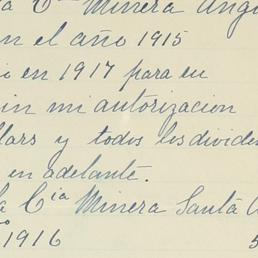 la Cia Minera Ang
en el año 1915
en 1917 para en
sin mi autorizacion
llars y todos los divide
en adelante.
la Cia Minera Santa
1916 5